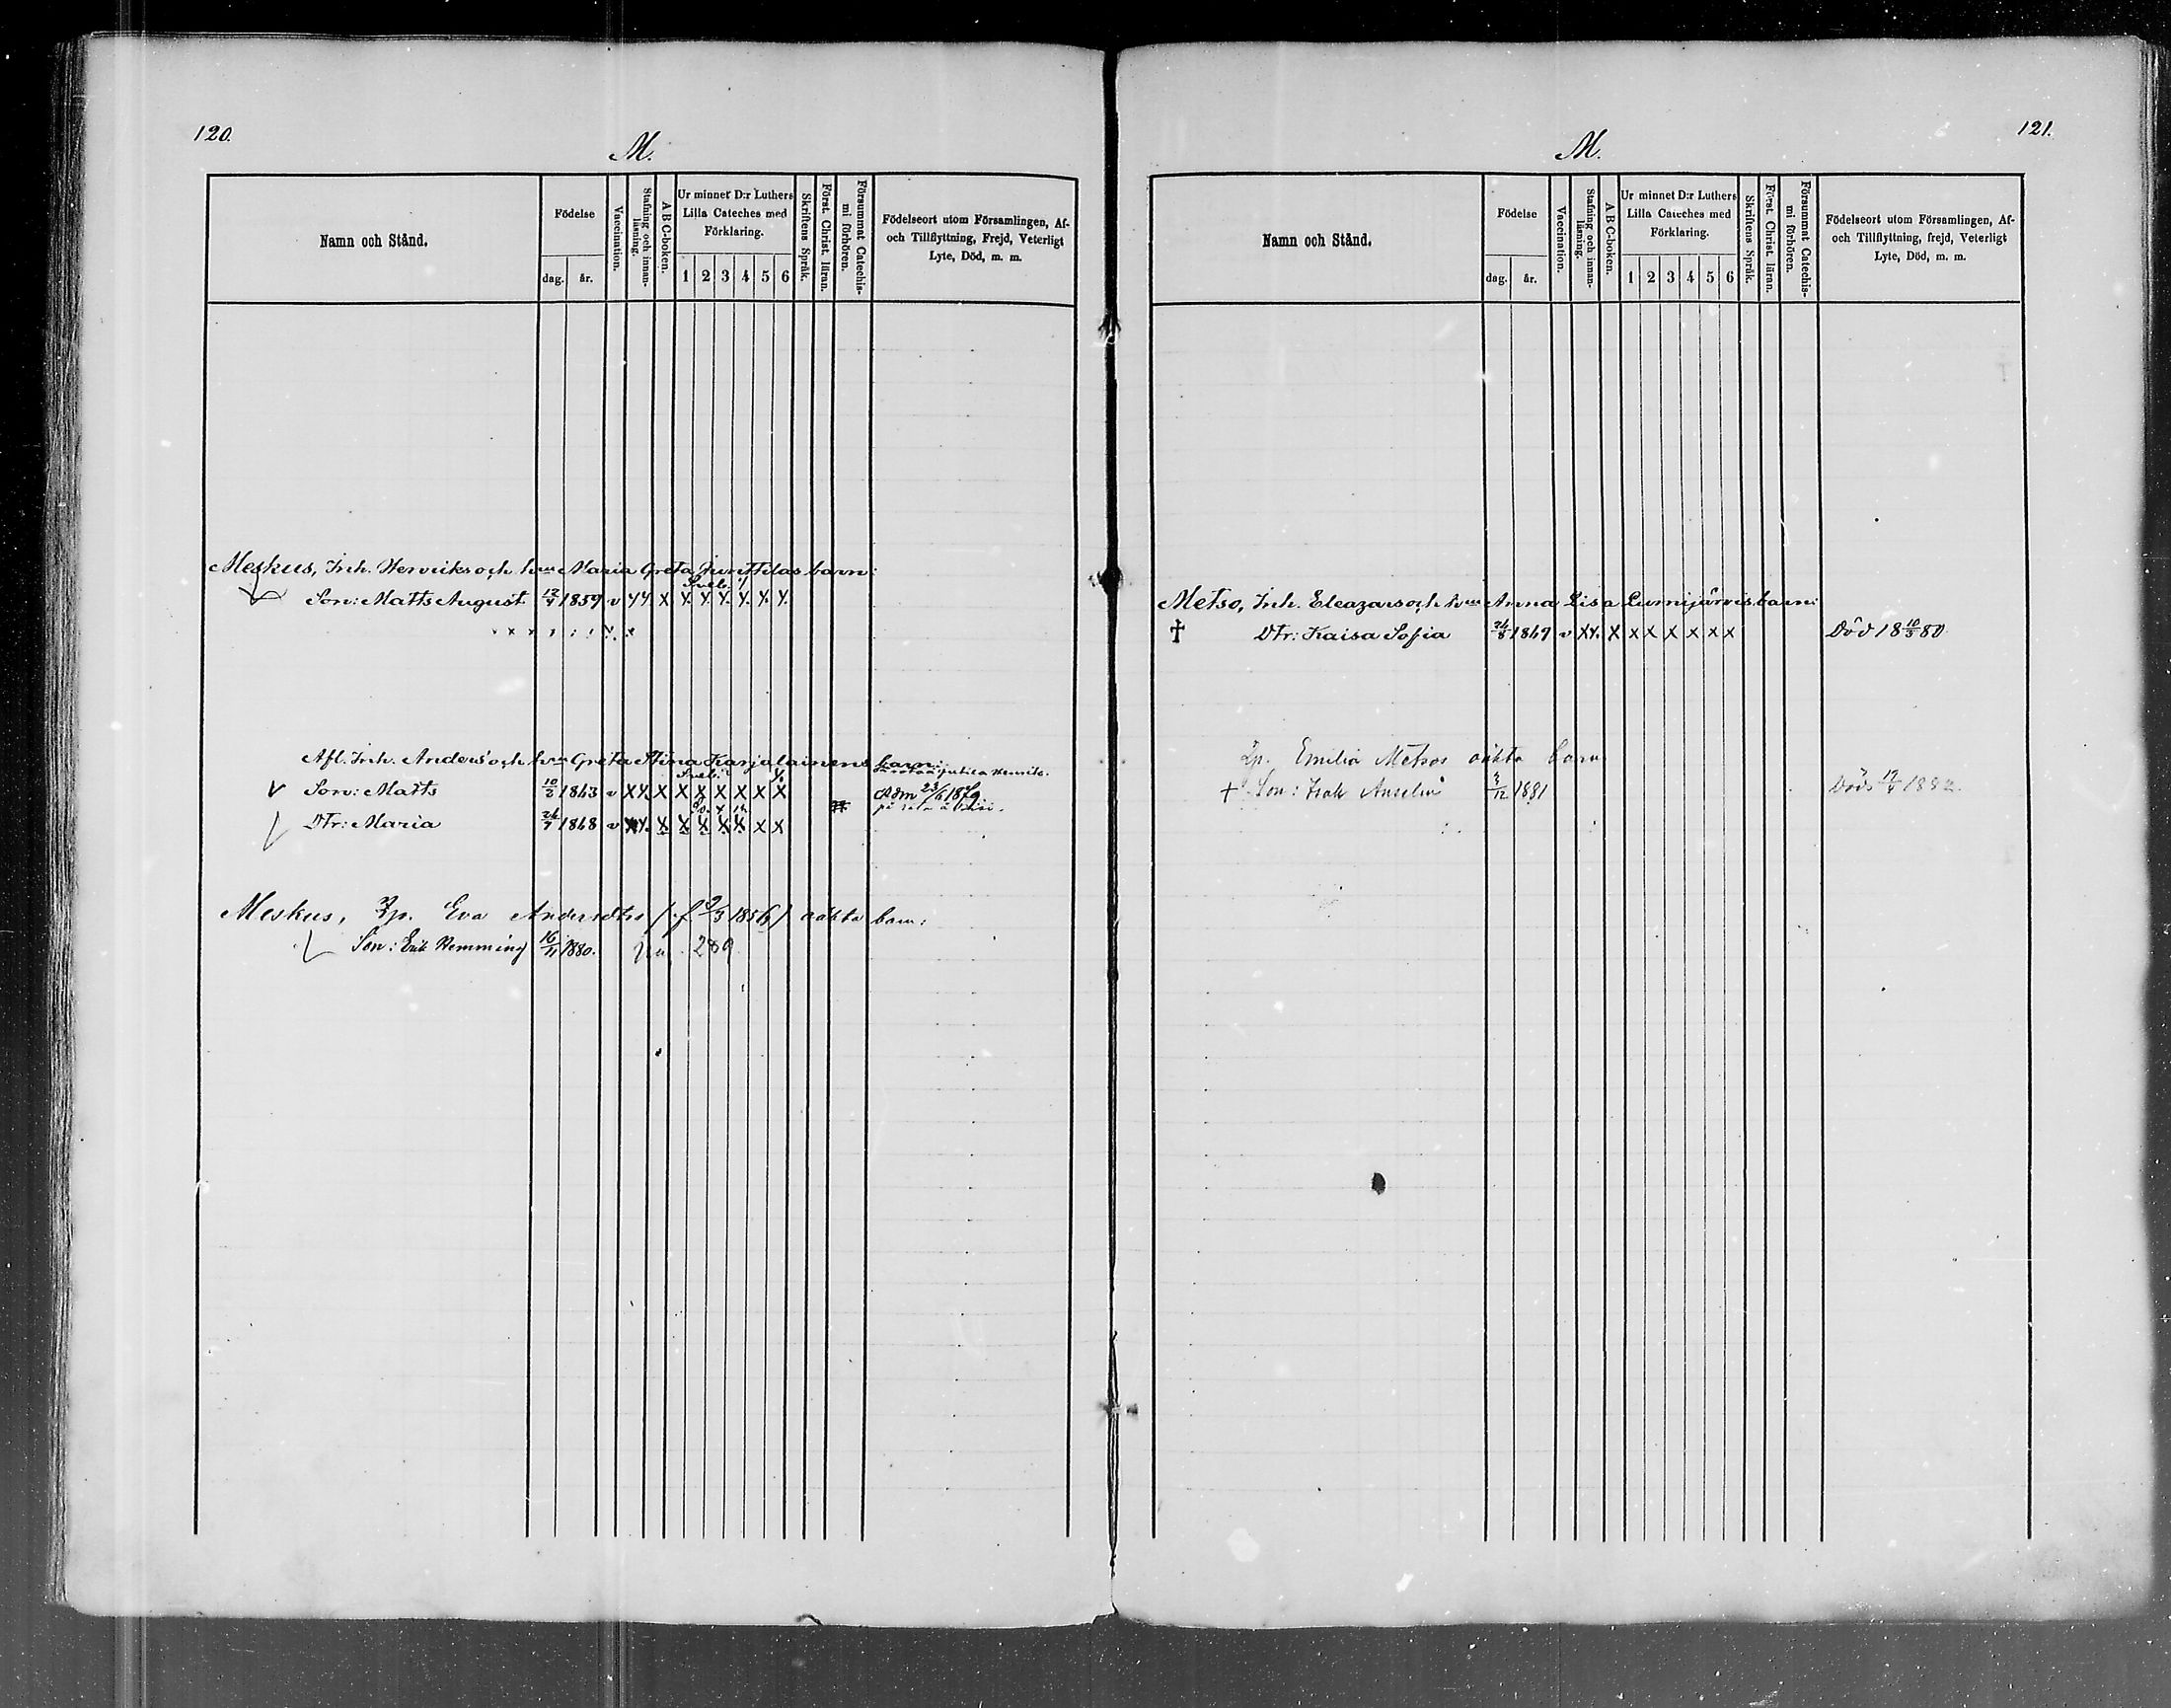 120.
M.
Namn och Stånd.
Födelse
dag.
år.
Vaccination.
Stafning och innan-
läsning.
A B C-boken.
Ur minnet D:r Luthers
Lilla Cateches med
Förklaring.
1 2 3 4 5 6
Skriftens Språk.
Först. Christ. läran.
Försummat Catechis-
mi förhören.
Födelseort utom Församlingen, Af-
och Tillflyttning, Frejd, Veterligt
Lyte, Död, m. m.
Meskus, Inh. Henriks och hu Maria Greta Junttilas barn:
Son: Matts August 12/4 1859 v
Afl. Inh. Anders' och hu Greta Stina Karjalainens barn:
Son: Matts 10/3 1863 v X X X X X X X X
Adm 23/6 1879
Dtr: Maria 24/7 1868 v
Meskus, Eva Andersdtrs (f 2/3 1856) oäkta barn:
Son: Erik Hemming 16/11 1880. 289
121.
M.
Namn och Stånd.
Födelse
dag.
år.
Vaccination.
Stafning och innan-
läsning.
A B C-boken.
Ur minnet D:r Luthers
Lilla Cateches med
Förklaring.
1 2 3 4 5 6
Skriftens Språk.
Först. Christ. läran.
Försummat Catechis-
mi förhören.
Födelseort utom Församlingen, Af-
och Tillflyttning, frejd, Veterligt
Lyte, Död, m. m.
Metso, Inh. Eleazars och hu Anna Lisa Lumijärvis barn:
† Dtr: Kaisa Sofia 24/8 1867 v X X X X X X X X Död 18 10/3 80
Emilia Metsos oäkta barn
+ Son: Isak Anselm 3/12 1881 Död 17/4 1882.